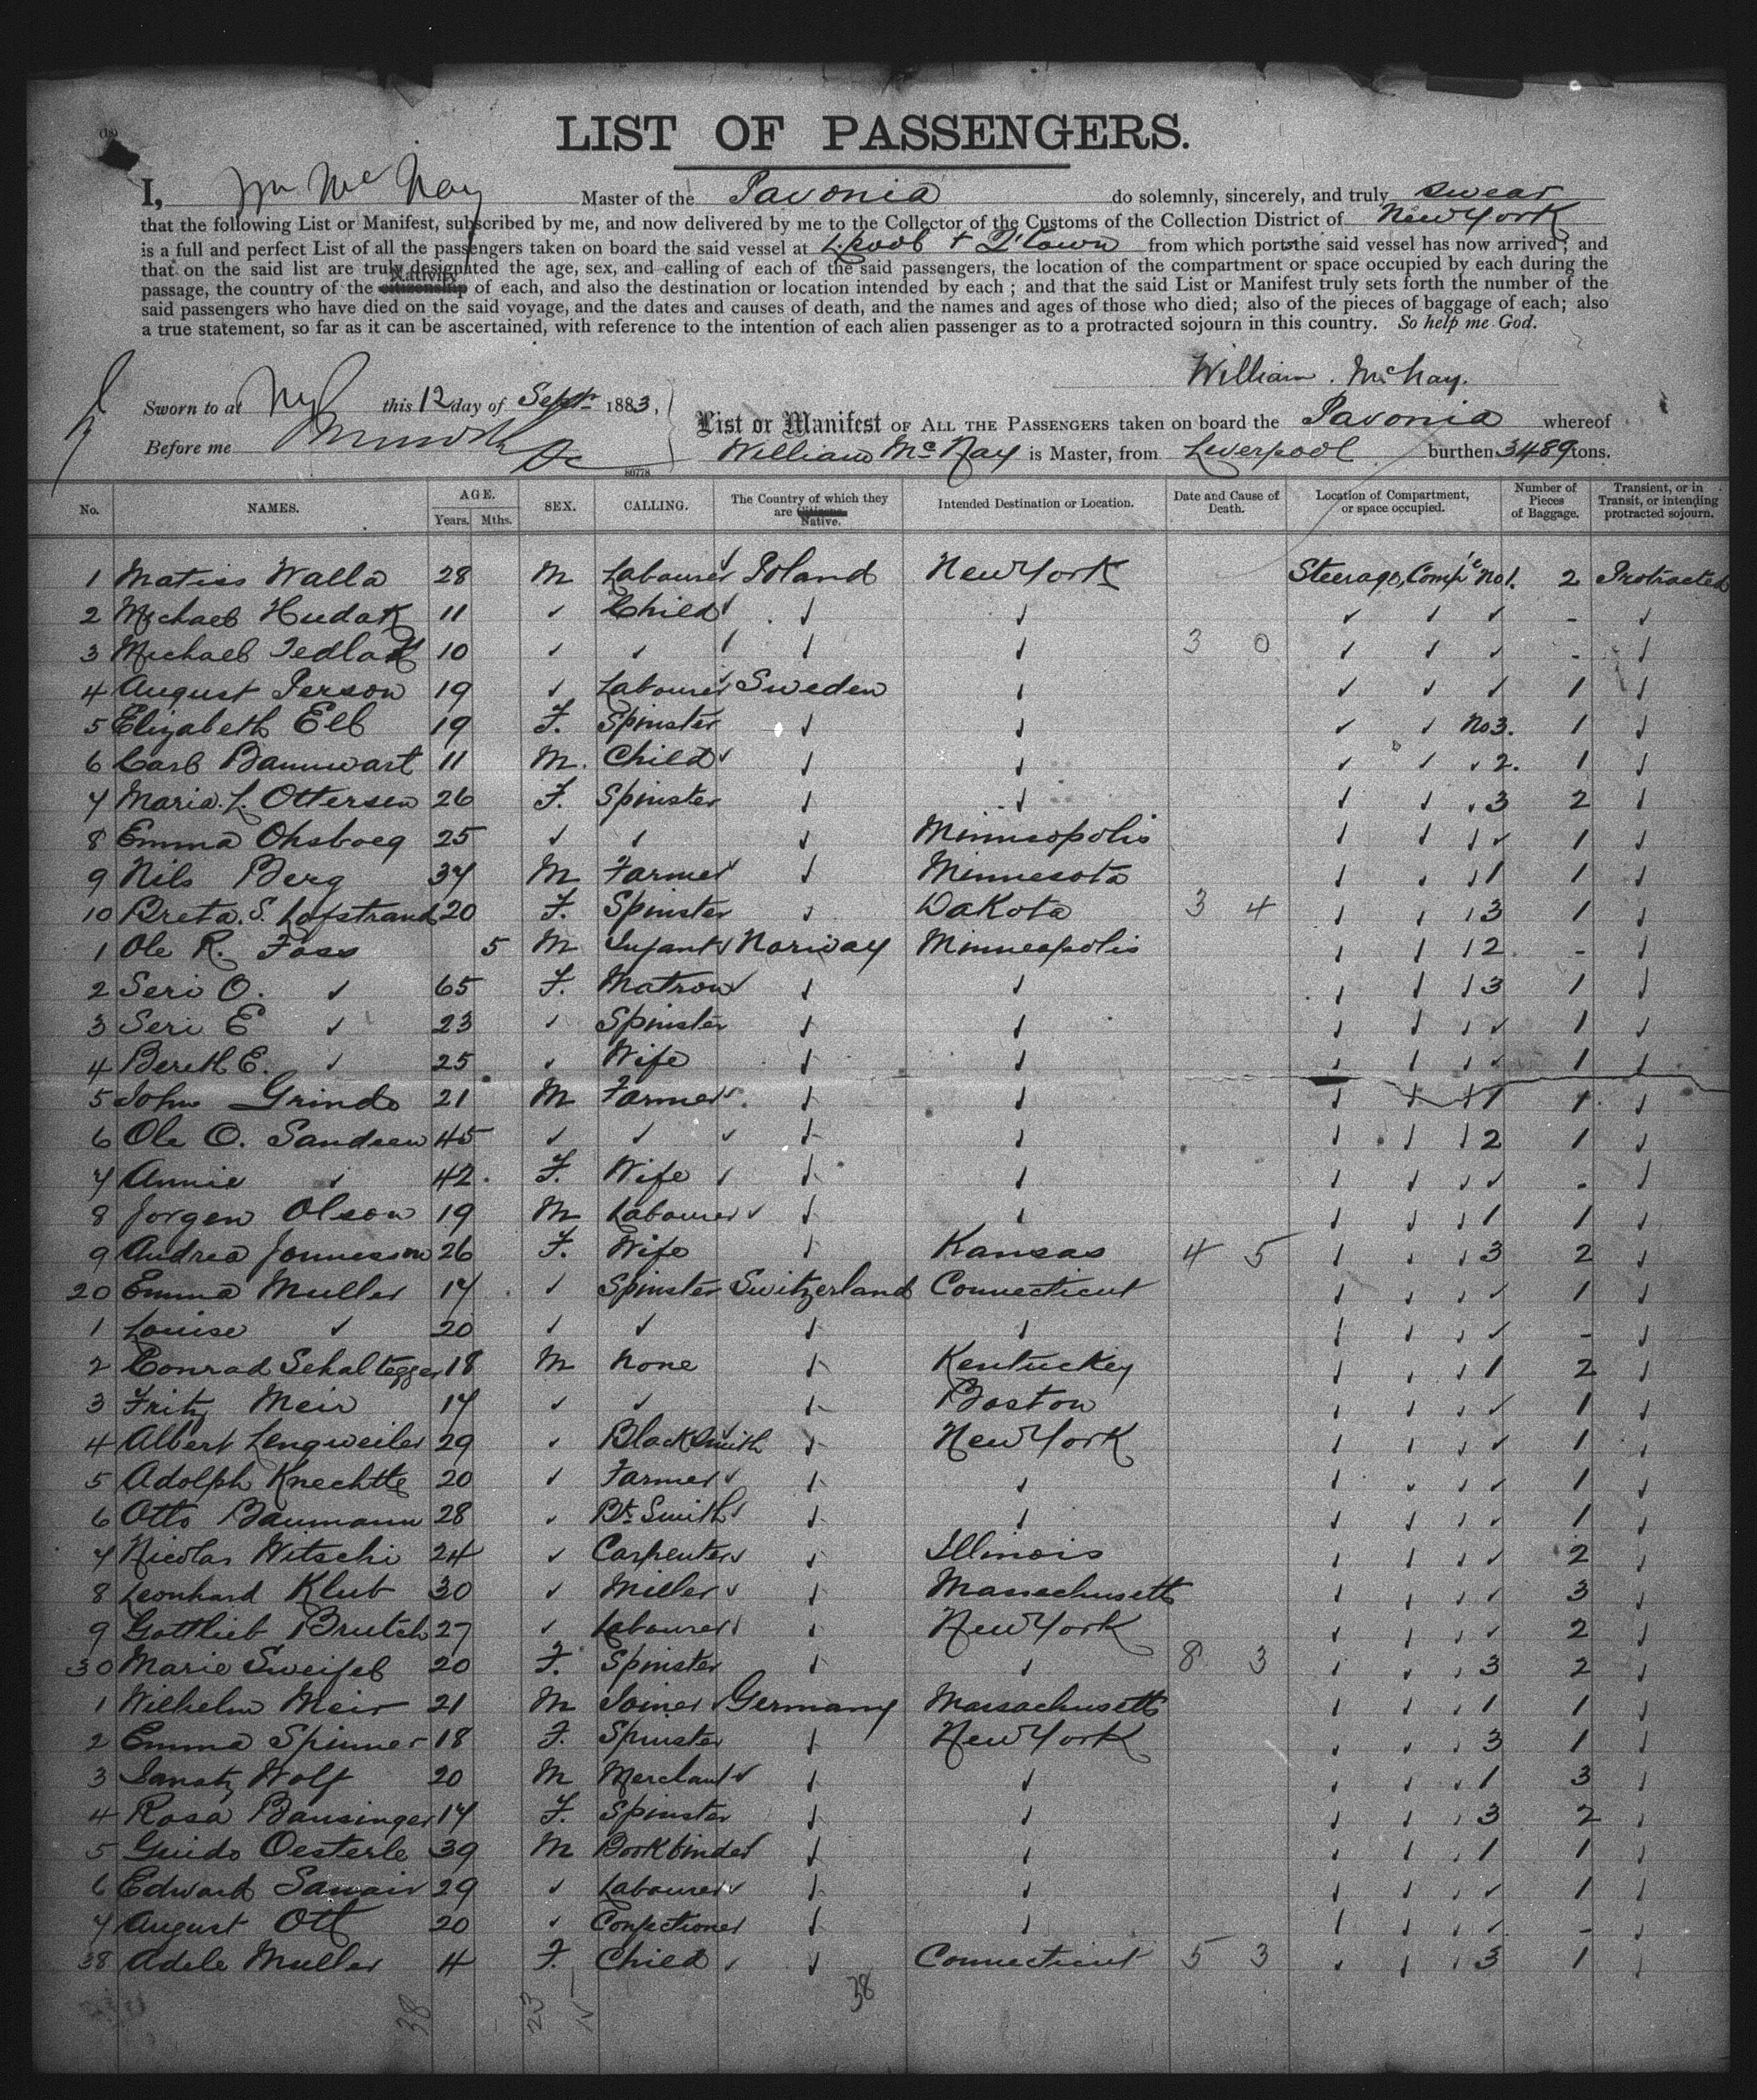 LIST OF PASSENGERS.
I, Wm McNay Master of the Pavonia do solemnly, sincerely, and truly swear
that the following List or Manifest, subscribed by me, and now delivered by me to the Collector of the Customs of the Collection District of New York
is a full and perfect List of all the passengers taken on board the said vessel at L'pool + Q'town from which ports the said vessel has now arrived; and
that on the said list are truly designated the age, sex, and calling of each of the said passengers, the location of the compartment or space occupied by each during the
Nativity
passage, the country of the citizenship of each, and also the destination or location intended by each; and that the said List or Manifest truly sets forth the number of the
said passengers who have died on the said voyage, and the dates and causes of death, and the names and ages of those who died; also of the pieces of baggage of each; also
a true statement, so far as it can be ascertained, with reference to the intention of each alien passenger as to a protracted sojourn in this country. So help me God.
William McNay.
Sworn to at NY this 12 day of Sept 1883,
Before me
80778
List or Manifest OF ALL THE PASSENGERS taken on board the Pavonia whereof
William McNay is Master, from Liverpool burthen 3489 tons.
No. NAMES. AGE. Years. Mths. SEX. CALLING. The Country of which they are Citizens. Native. Intended Destination or Location. Date and Cause of Death. Location of Compartment, or space occupied. Number of Pieces of Baggage. Transient, or in Transit, or intending protracted sojourn.
1 Matiss Walla 28 M Labourer Poland New York Steerage, Comp't No 1. 2 Protracted
2 Michael Hudak 11 ✓ Child ✓ ✓ ✓ ✓ ✓ - ✓
3 Michael Tedlak 10 ✓ ✓ ✓ ✓ 3 0 ✓ ✓ ✓ - ✓
4 August Person 19 ✓ Labourer Sweden ✓ ✓ ✓ ✓ 1 ✓
5 Elizabeth Ell 19 F. Spinster ✓ ✓ ✓ ✓ No 3. 1 ✓
6 Carl Bannwart 11 M. Child ✓ ✓ ✓ ✓ ✓ 2. 1 ✓
7 Maria. L. Ottersen 26 F. Spinster ✓ ✓ ✓ ✓ ✓ 3 2 ✓
8 Emma 25 ✓ ✓ ✓ Minneapolis ✓ ✓ ✓ ✓ 1 ✓
9 Nils Berg 37 M Farmer ✓ Minnesota ✓ ✓ ✓ 1 1 ✓
10 Breta. S. Lofstrand 20 F. Spinster ✓ Dakota 3 4 ✓ ✓ ✓ 3 1 ✓
1 Ole R. Foss 5 M Infant Norway Minneapolis ✓ ✓ ✓ 2 - ✓
2 Seri O. ✓ 65 F. Matron ✓ ✓ ✓ ✓ ✓ 3 1 ✓
3 Seri E ✓ 23 ✓ Spinster ✓ ✓ ✓ ✓ ✓ ✓ 1 ✓
4 Bereth E. ✓ 25 ✓ Wife ✓ ✓ ✓ ✓ ✓ ✓ 1 ✓
5 John Grindo 21 M Farmer ✓ ✓ ✓ ✓ ✓ 1 1 ✓
6 Ole O. Sandeen 45 ✓ ✓ ✓ ✓ ✓ ✓ ✓ 2 1 ✓
7 Annie ✓ 42 F. Wife ✓ ✓ ✓ ✓ ✓ ✓ - ✓
8 Jorgen Olson 19 M Labourer ✓ ✓ ✓ ✓ ✓ 1 1 ✓
9 Andrea Jonnesson 26 F. Wife ✓ Kansas 4 5 ✓ ✓ ✓ 3 2 ✓
20 Emma Muller 17 ✓ Spinster Switzerland Connecticut ✓ ✓ ✓ ✓ 1 ✓
1 Louise ✓ 20 ✓ ✓ ✓ ✓ ✓ ✓ ✓ ✓ - ✓
2 Conrad Schaltegger 18 M None ✓ Kentuckey ✓ ✓ ✓ 1 2 ✓
3 Fritz Meir 17 ✓ ✓ ✓ Boston ✓ ✓ ✓ ✓ 1 ✓
4 Albert Lengweiler 29 ✓ BlackSmith ✓ New York ✓ ✓ ✓ ✓ 1 ✓
5 Adolph Knechtte 20 ✓ Farmer ✓ ✓ ✓ ✓ ✓ ✓ 1 ✓
6 Otto Baumann 28 ✓ Bk Smith ✓ ✓ ✓ ✓ ✓ ✓ 1 ✓
7 Nicolas Witschi 24 ✓ Carpenter ✓ Illinois ✓ ✓ ✓ ✓ 2 ✓
8 Leonhard Klub 30 ✓ Miller ✓ Massachusetts ✓ ✓ ✓ ✓ 3 ✓
9 Gottlieb Brutch 27 ✓ Labourer ✓ New York ✓ ✓ ✓ ✓ 2 ✓
30 Marie Sweifel 20 F. Spinster ✓ ✓ 8 3 ✓ ✓ ✓ 3 2 ✓
1 Wilhelm Meir 21 M Joiner Germany Massachusetts ✓ ✓ ✓ 1 1 ✓
2 Emma Spinner 18 F. Spinster ✓ New York ✓ ✓ ✓ 3 1 ✓
3 Ignatz Wolf 20 M Merchant ✓ ✓ ✓ ✓ ✓ 1 3 ✓
4 Rosa Bansinger 17 F. Spinster ✓ ✓ ✓ ✓ ✓ 3 2 ✓
5 Guido Oesterle 39 M Bookbinder ✓ ✓ ✓ ✓ ✓ 1 1 ✓
6 Edward 29 ✓ Labourer ✓ ✓ ✓ ✓ ✓ ✓ 1 ✓
7 August Ott 20 ✓ Confectioner ✓ ✓ ✓ ✓ ✓ ✓ - ✓
38 Adele Muller 4 F. Child ✓ Connecticut 5 3 ✓ ✓ ✓ 3 1 ✓
38 23 15 38